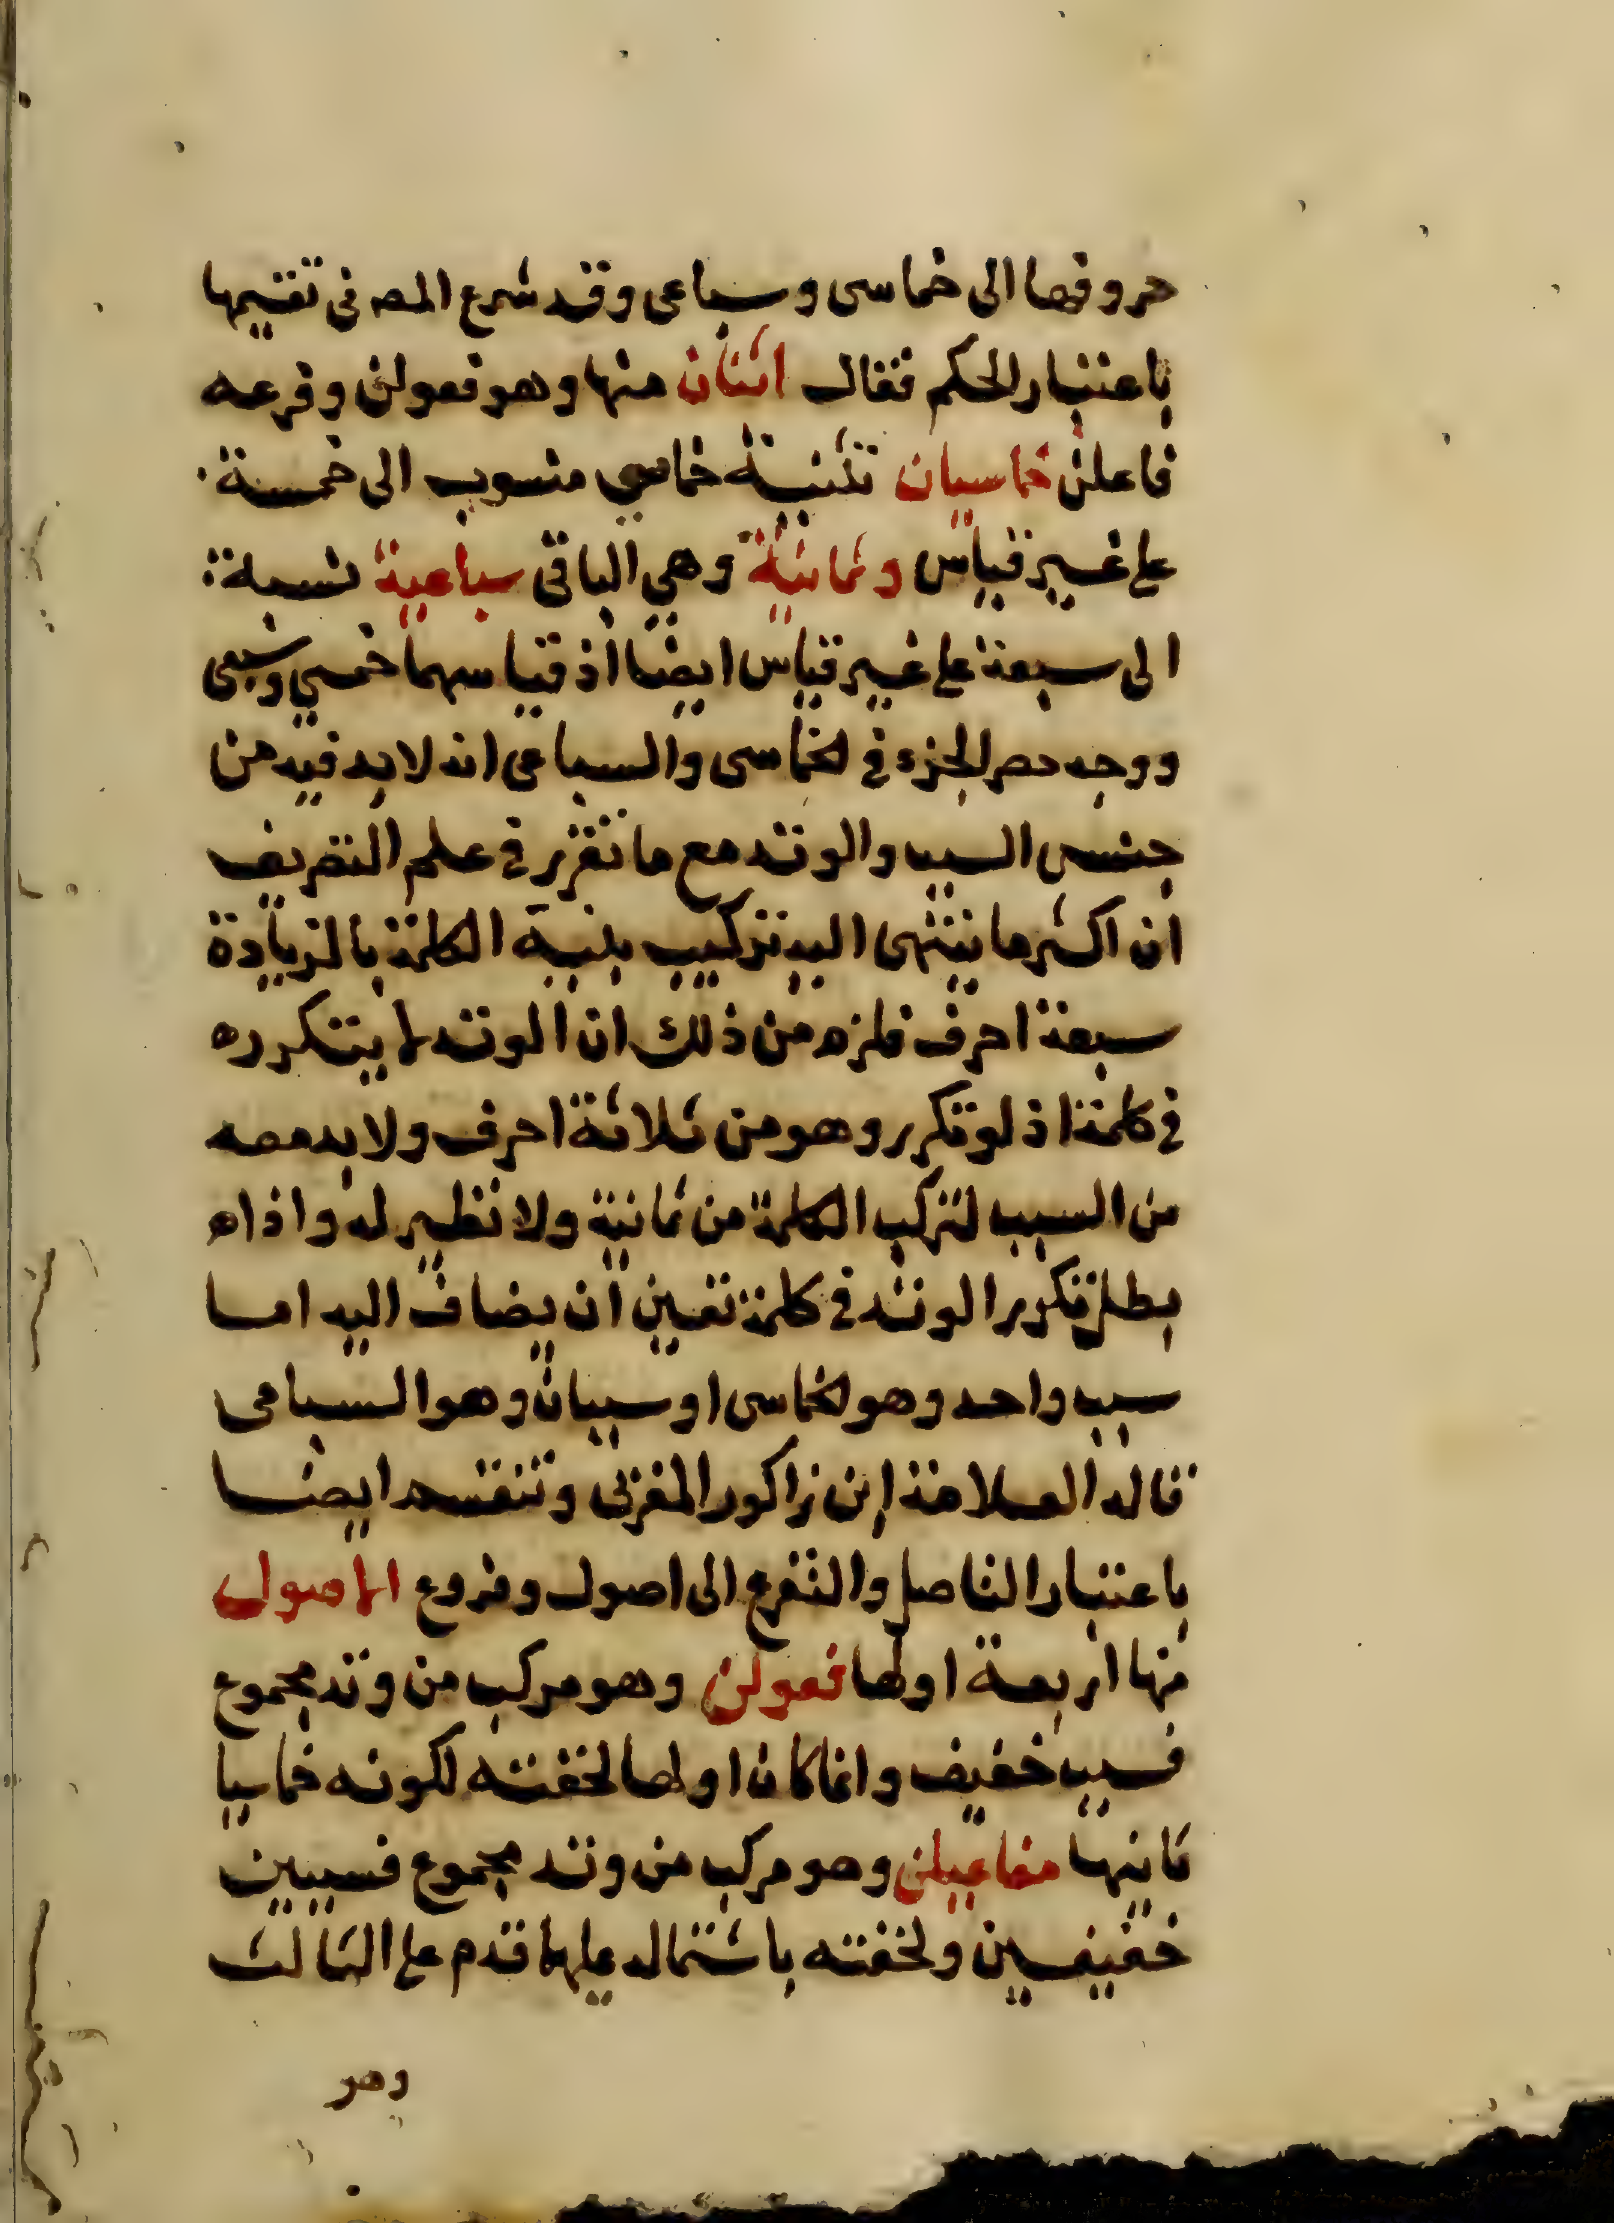 حروفها الى خماسى وسباعى وقد شرع المصـ فى تقسيمها
باعتبار الحكم فقال اثنان منها وهو فعولن وفرعه
فاعلن خماسيان تثنية خماسي منسوب الى خمسة
على غير قياس وثمانية وهي الباقى سباعية نسبة
الى سبعة على غير قياس ايضا اذ قياسهما خمسي وسبعى
ووجه حصر الجزء في الخماسى والسباعى انه لا بد فيه من
جنس السبب والوتد مع ما تقرر في علم التصريف
ان اكثر ما ينتهى اليه تركيب بنية الكلمة بالزيادة
سبعة احرف فلزم من ذلك ان الوتد لا يتكرر ه
في كلمة اذ لو تكرر وهو من ثلاثة احرف ولا بد معه
من السبب لتركب الكلمة من ثمانية ولا نظير له واذا ه
بطل تكرر الوتد في كلمة تعين ان يضاف اليه اما
سبب واحد وهو الخماسى او سببان وهو السباعى
قاله العلامة ابن زاكور المغربى وتنقسم ايضا
باعتبار التاصل والتفرع الى اصول وفروع الاصول
منها اربعة اولها فعولن وهو مركب من وتد مجموع
فسبب خفيف وانما كان اولها لخفته لكونه خماسيا
ثانيها مفاعيلن وهو مركب من وتد مجموع فسببين
خفيفين ولخفته باشتماله عليهما قدم على الثالث
وهو